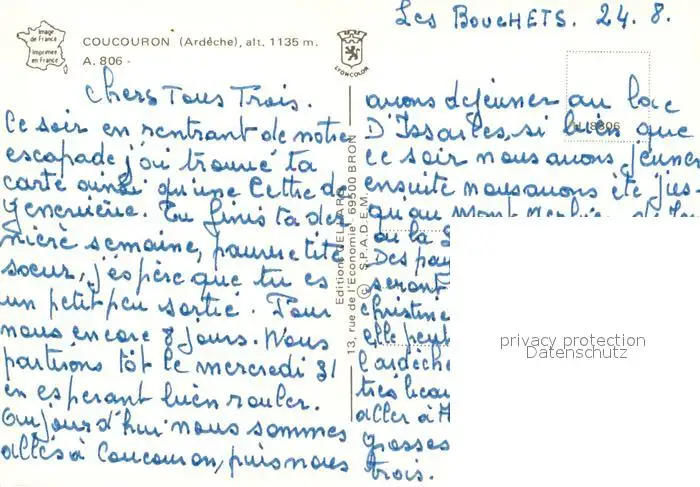 Les BoucHETS. 24.8.
Image
de France
Imprimée
en France
COUCOURON (Ardèche), alt. 1135 m.
A. 806 -
LYONCOLOR
Chers Tous Trois.
Ce soir en rentrant de notre
escapade j'ai trouvé ta
carte ainsi qu'une lettre de
Geneviève. Tu finis ta der
nière semaine, pauvre tite
soeur, j'espère que tu es
un petit peu sortie. Pour
nous encore 8 jours. Nous
partirons tôt le mercredi 31
en espérant bien rouler.
Aujourd'hui nous sommes
allés à Coucouron, puis nous
Editions DELLARD
13, rue de l'Economie - 69500 BRON
© S.P.A.D.E.M.
avons déjeuner au lac
D'Issarlès, si bien que
ce soir nous avons jeuner
ensuite nous avons été jus-
qu'au Mont
ou la
Des pay
seront
christine
elle peut
l'ardèche
très beau
aller à
grosses
trois.
privacy protection
Datenschutz